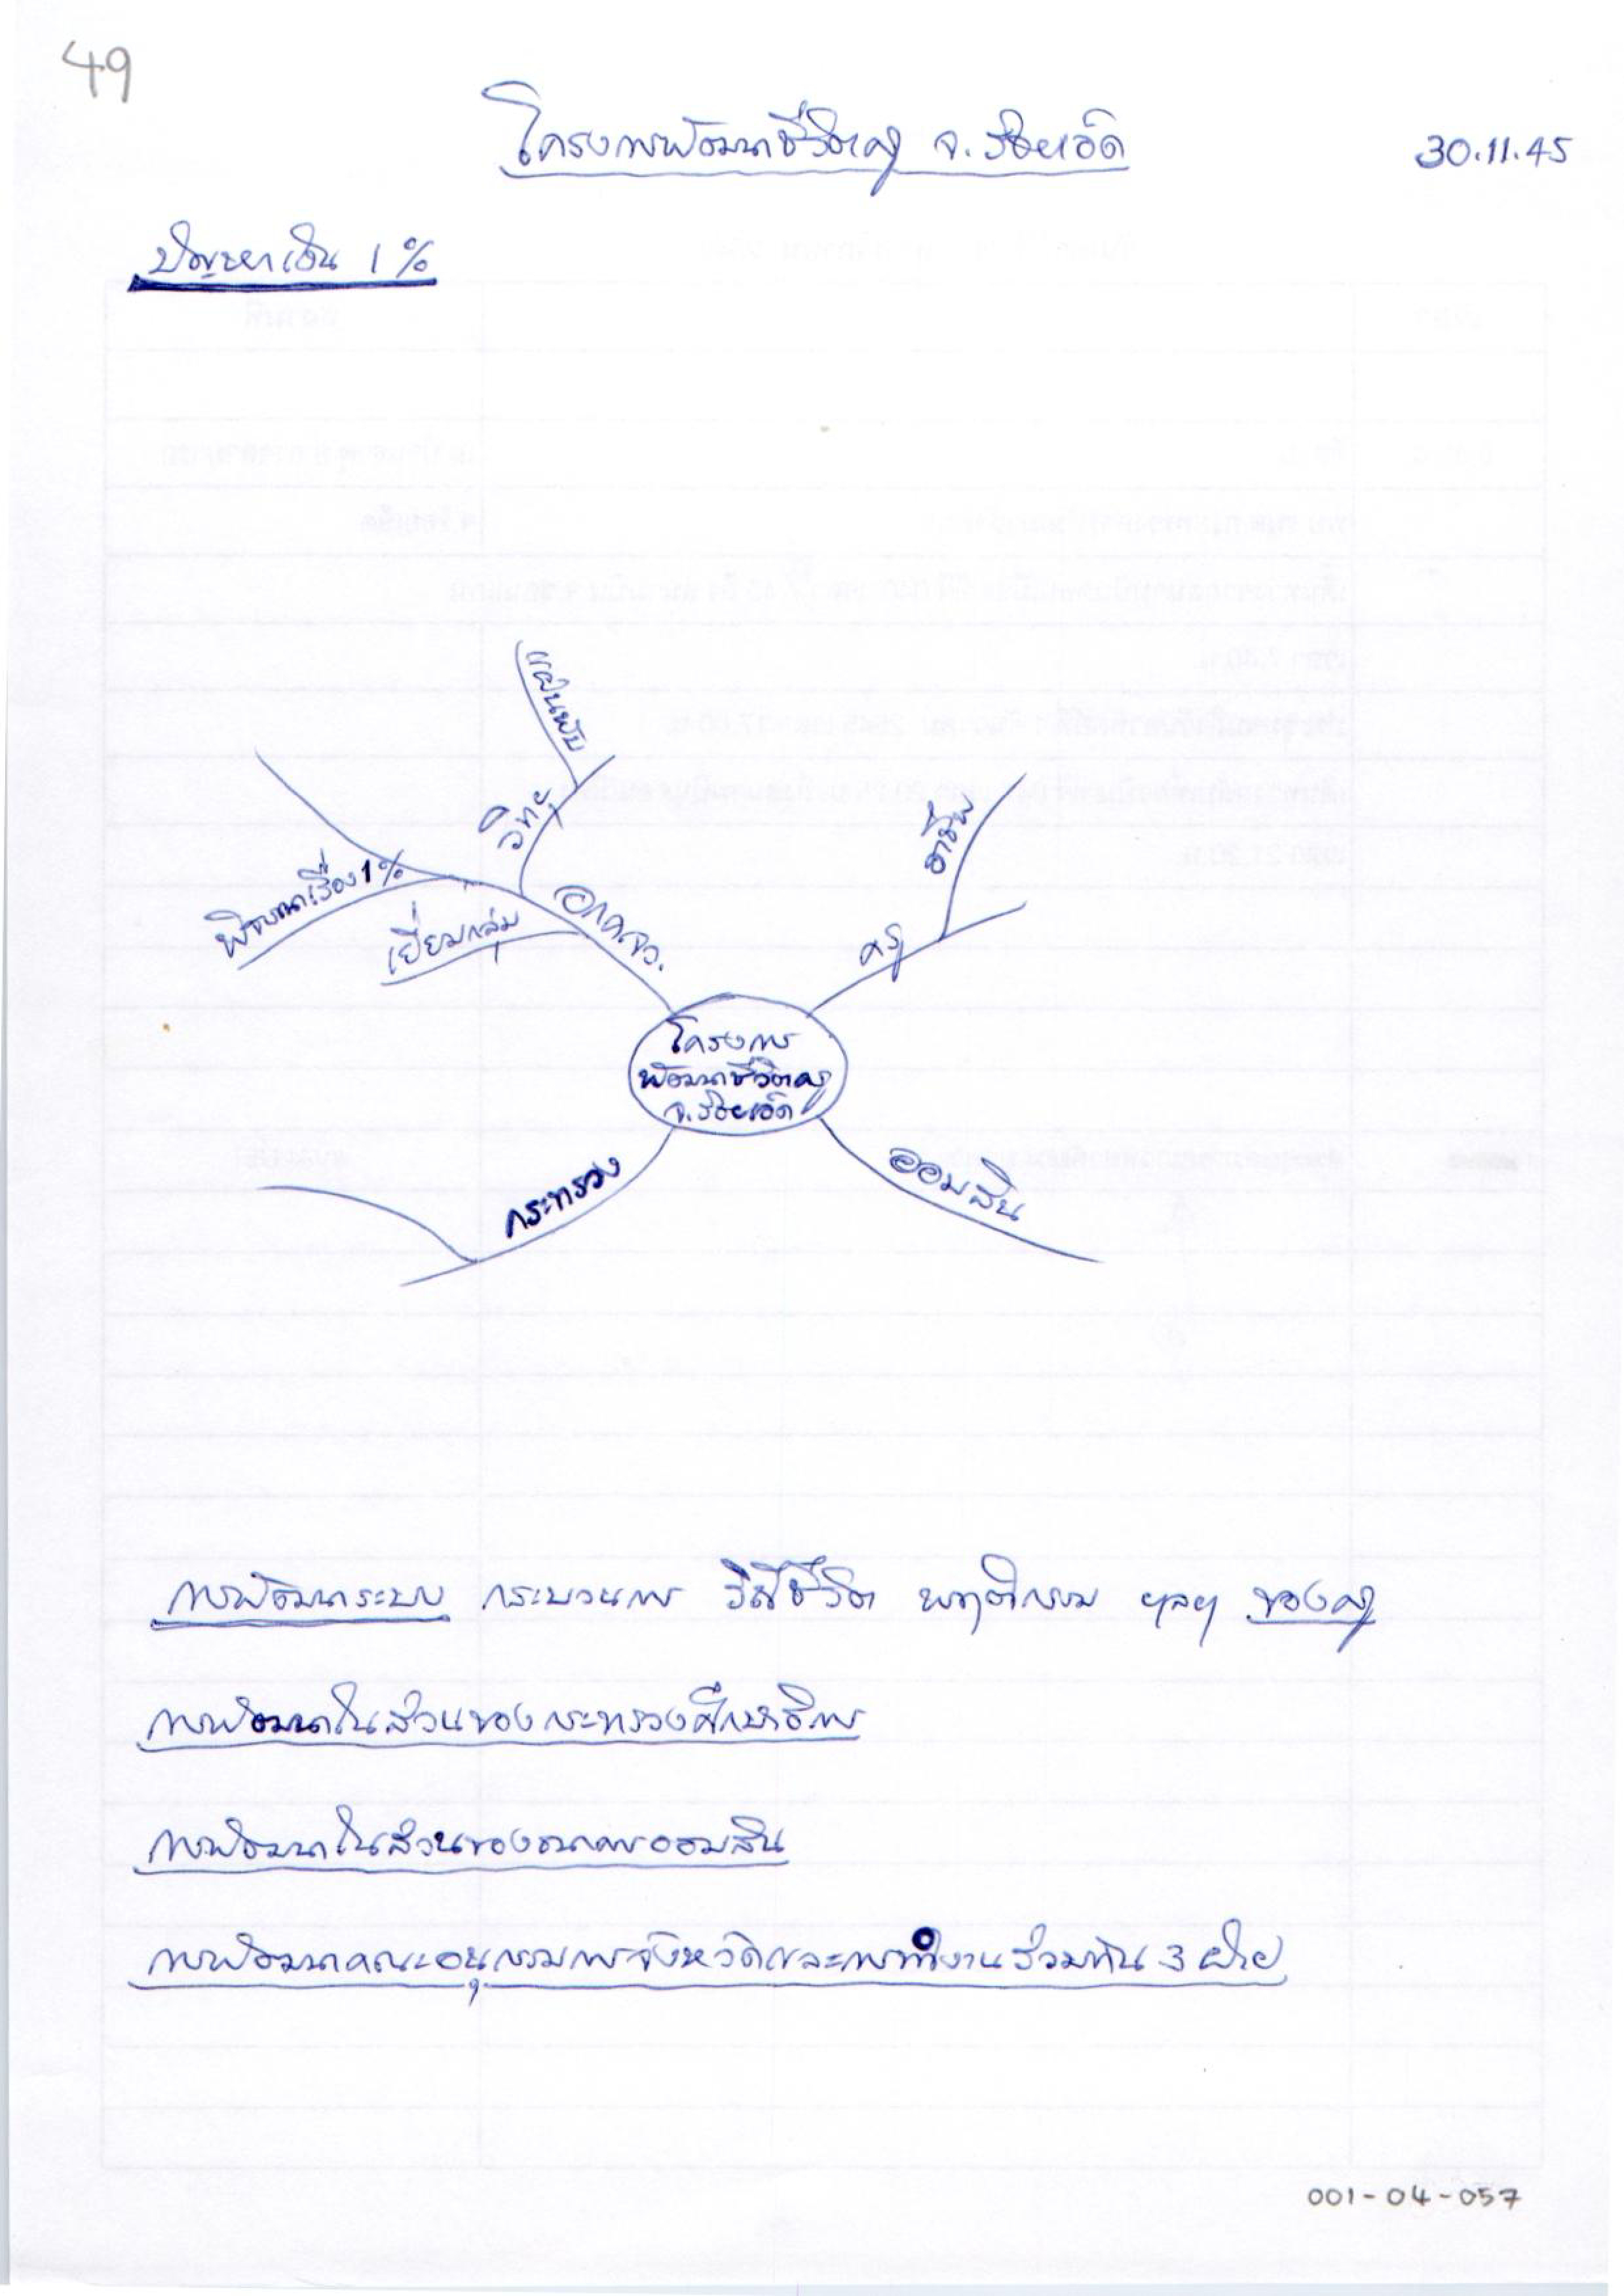 49
โครงการพัฒนาชีวิตครู จ.ร้อยเอ็ด
30.11.45
ปัญหาเงิน 1 %
แผ่นพับ
วิทยุ
อาชีพ
พิจารณาเรื่อง 1%
เยี่ยมกลุ่ม
อกค.จว.
ครู
โครงการ
พัฒนาชีวิตครู
จ.ร้อยเอ็ด
กระทรวง
ออมสิน
การพัฒนาระบบ กระบวนการ วิถีชีวิต พฤติกรรม ฯลฯ ของครู
การพัฒนาในส่วนของกระทรวงศึกษาธิการ
การพัฒนาในส่วนของธนาคารออมสิน
การพัฒนาคณะอนุกรรมการจังหวัดและการทำงานร่วมกัน 3 ฝ่าย
001-04-057